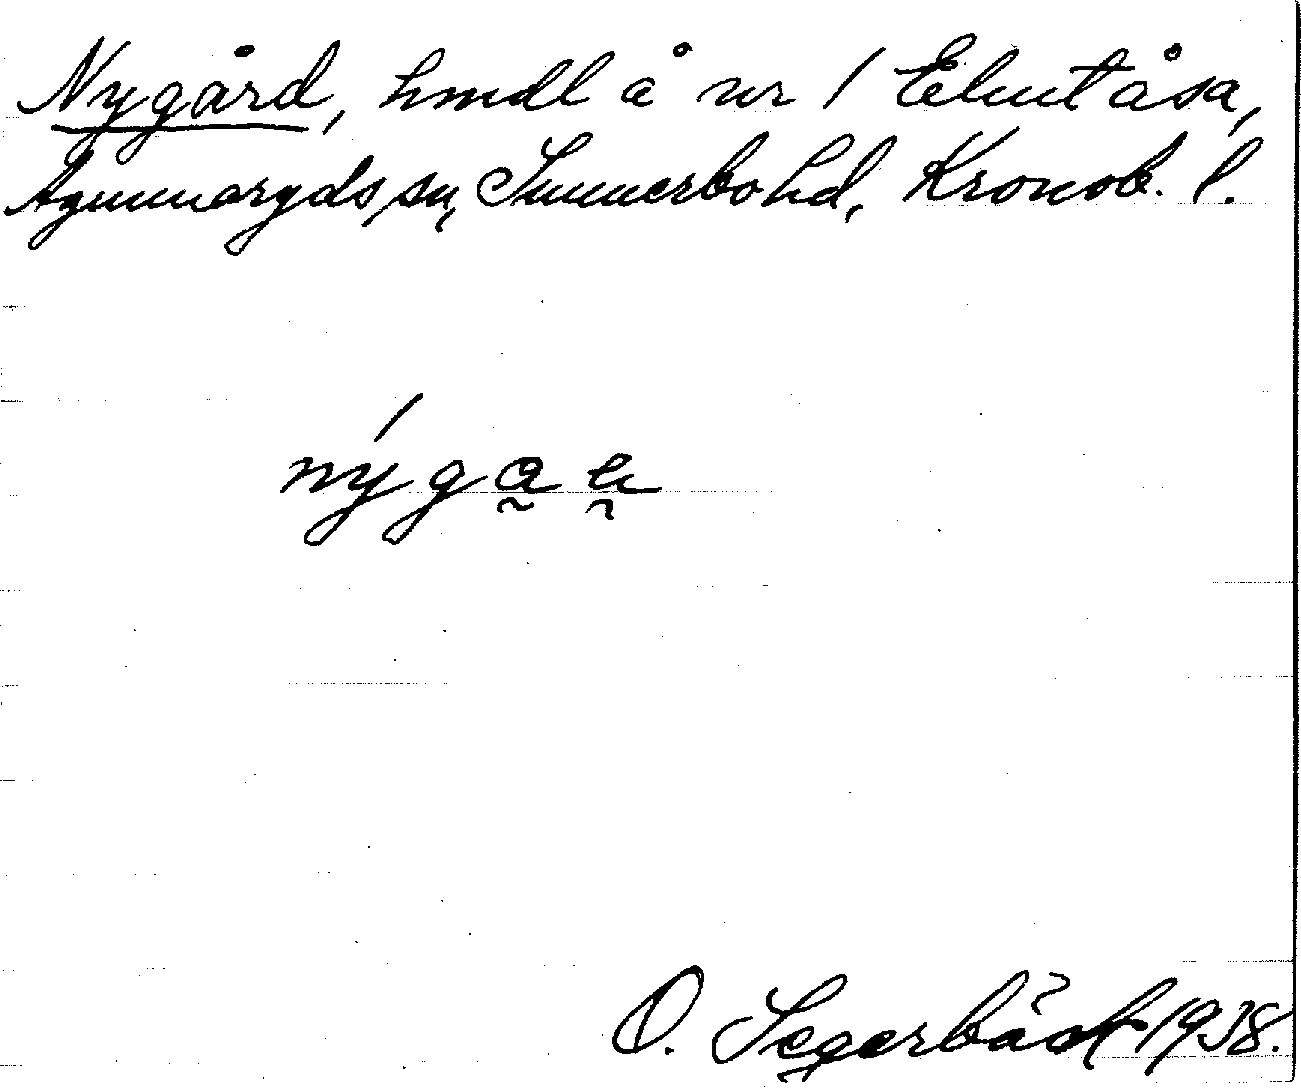 Nygård, hmdl å nr 1 Elmtåsa,
Agunnaryds sn, Sunnerbo hd, Kronob. l.
nýga̰ḛ
O. Segerbäck 1938.